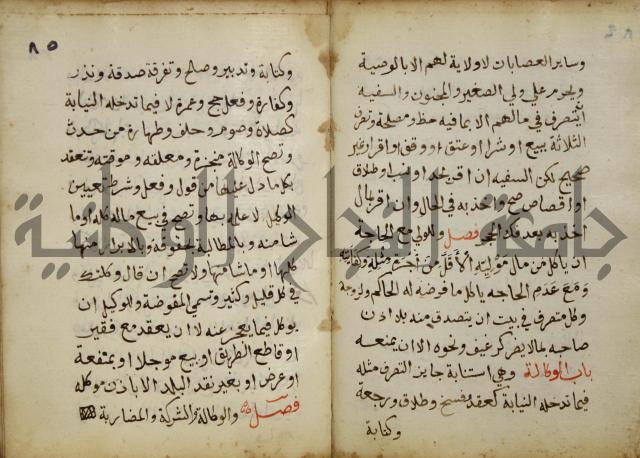 وساير العصابات لا ولاية لهم الا بالوصية
ويحرم علي ولي الصغير والمجنون والسفيه
ان يتصرف في مالهم الا بما فيه حظ ومصلحة وتصرف
الثلاثة ببيع او شرا او عتق او وقف او اقرار غير
صحيح لكن السفيه ان اقر بحد او نسب او طلاق
او قصاص صح واخذ به في الحال وان اقر بمال
اخذ به بعد فك الحجر فصل وللولي مع الحاجه
ان ياكل من مال موليه الاقل من اجرة مثله وكفايته
ومع عدم الحاجه ياكل ما فرضه له الحاكم ولزوجة
وكل متصرف في بيت ان يتصدق منه بلا اذن
صاحبه بما لا يضر كرغيف ونحوه الا ان يمنعه
باب الوكالة وهي استنابة جايز التصرف مثله
فيما تدخله النيابة كعقد وفسخ وطلاق ورجعة
وكتابة
٨٥
وكتابة وتدبير وصلح وتفرقة صدقة ونذر
وكفارة وفعل حج وعمرة لا فيما لا تدخله النيابة
كصلاة وصوم وحلف وطهارة من حدث
وتصح الوكالة منجزة ومعلقه وموقته وتنعقد
بكل ما دل عليها من قول وفعل وشرط تعيين
الوكيل لا علمه بها وتصح في بيع ماله كله او ما
شا منه وبالمطالبة بحقوقه وبالابرا منها
كلها او ما شا منها ولا تصح ان قال وكلتك
في كل قليل وكثير وتسمي المفوضة وللوكيل ان
يوكل فيما يعجز عنه لا ان يعقد مع فقير
او قاطع الطريق او يبيع موجلا او بمنفعة
او عرض او بغير نقد البلد الا باذن موكله
فصل والوكالة والشركة والمضاربة
جامعة النجاح الوطنية